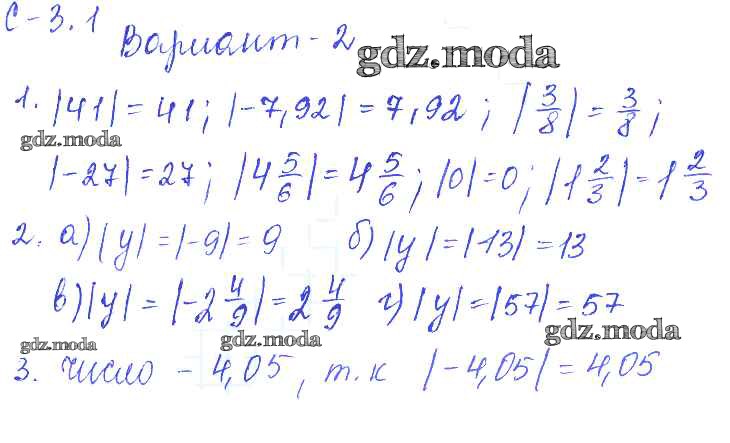 С-3.1
Вариант-2
gdz.moda
1. |41| = 41; |-7,92| = 7,92; |3/8| = 3/8;
gdz.moda
|-27| = 27; |4 5/6| = 4 5/6; |0| = 0; |1 2/3| = 1 2/3
2. а) |y| = |-9| = 9 б) |y| = |-13| = 13
в) |y| = |-2 4/9| = 2 4/9 г) |y| = |57| = 57
gdz.moda gdz.moda gdz.moda
3. число -4,05, т.к |-4,05| = 4,05